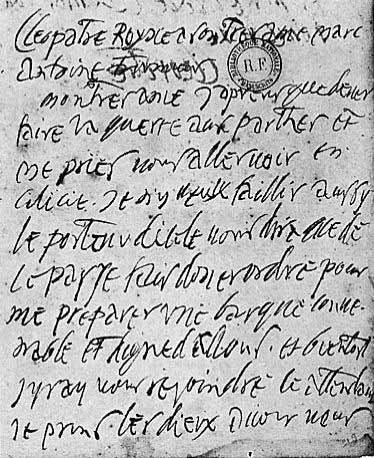 Cleopatre Royne a son tres ame marc
antoine
R.F
mon tres ame j aprens que deves
faire la guerre aux parthes et
me pries vous aller voir en
cilicie. je n y veulx faillir aussy
le porteur dicelle vous dire que de
ce pas fais donner ordre pour
me preparer une barque conve
nable et digne de vous. et bientost
j yray vous rejoindre. ce attendant
je prie les dieux avoir vous